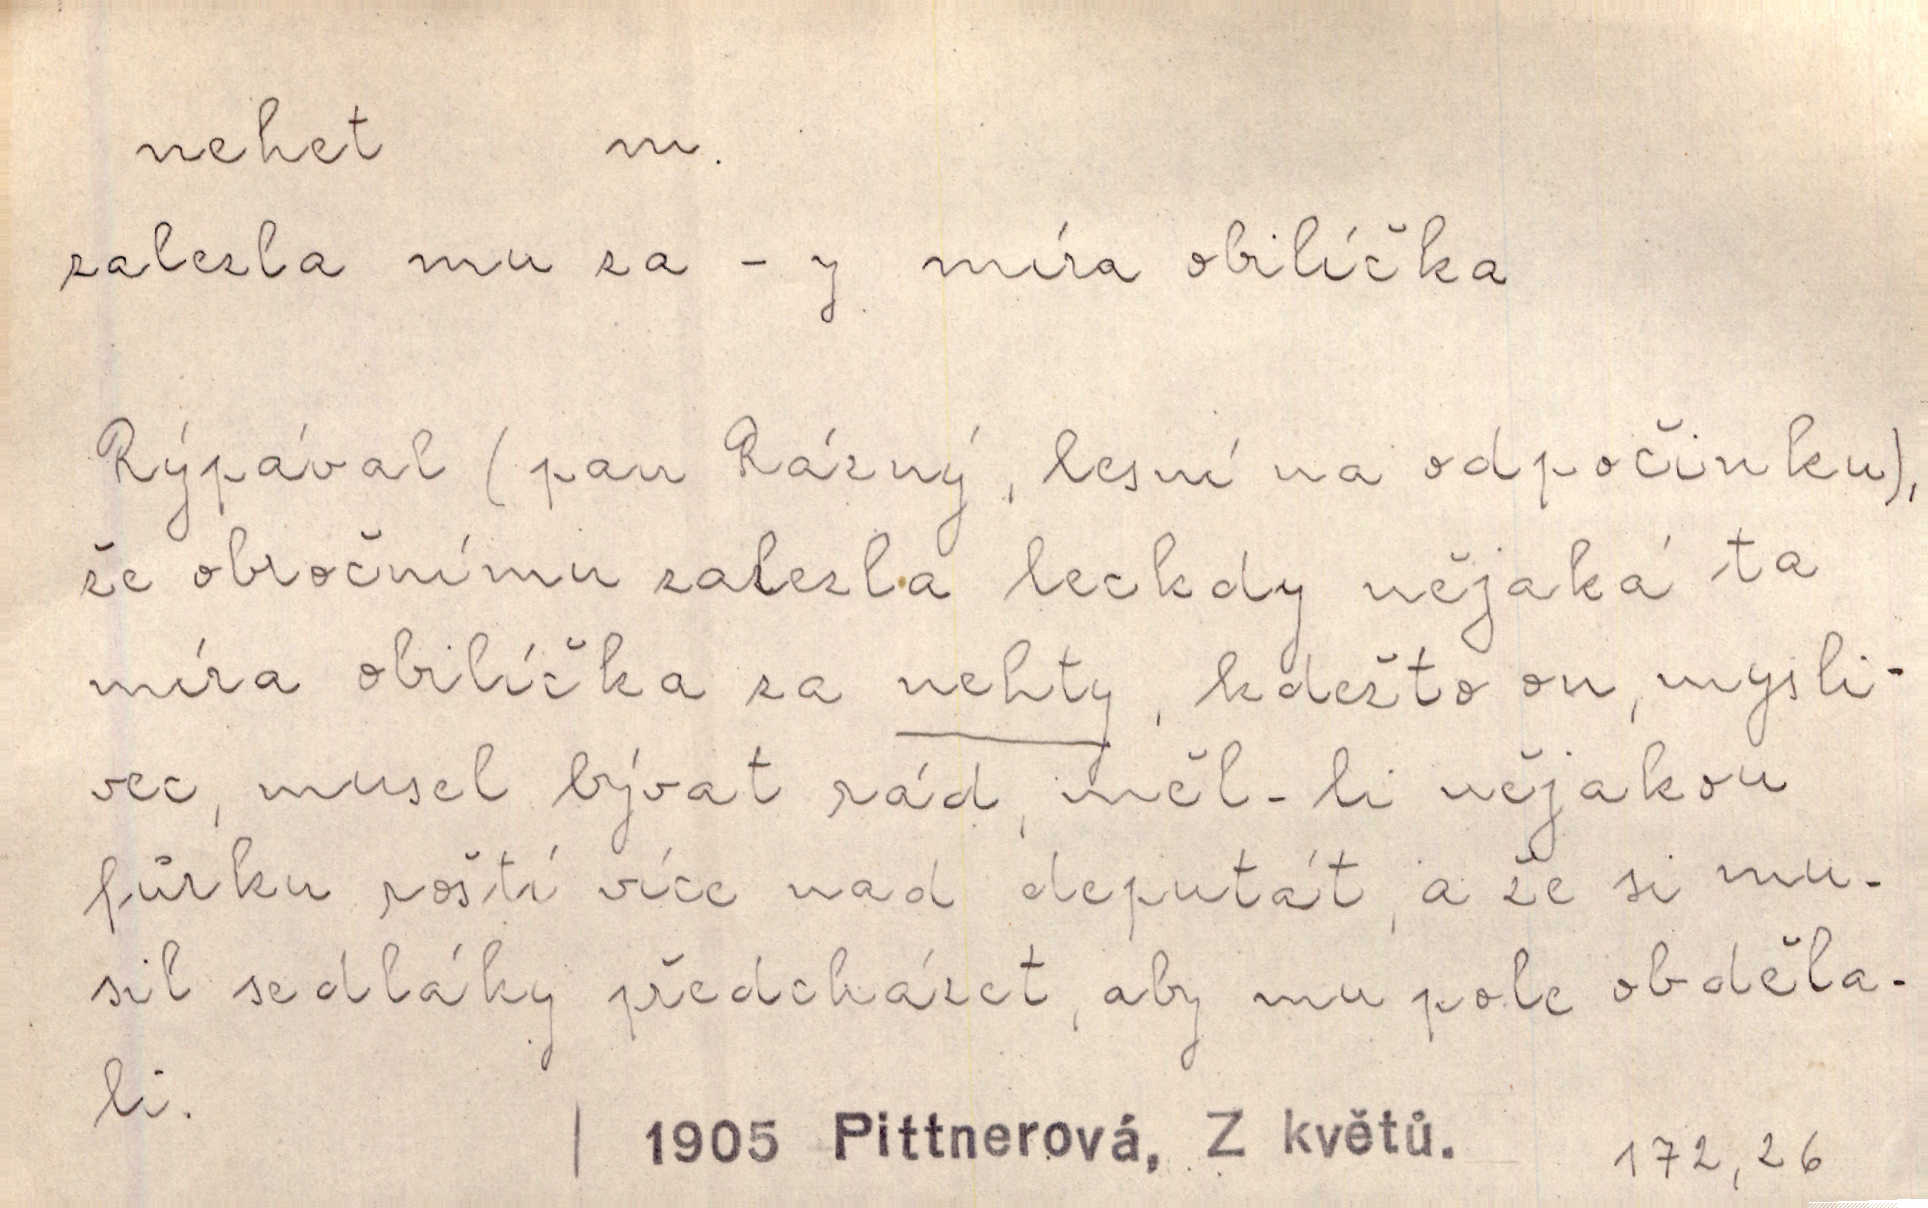 nehet m.
zalezla mu za -y míra obilíčka
Rýpával (pan Rázný, lesní na odpočinku),
že obročnímu zalezla leckdy nějaká ta
míra obilíčka za nehty, kdežto on, mysli-
vec, musel bývat rád, měl-li nějakou
fůrku roští více nad deputát, a že si mu-
sil sedláky předcházet, aby mu pole obděla-
li.
| 1905 Pittnerová, Z květů. 172,26